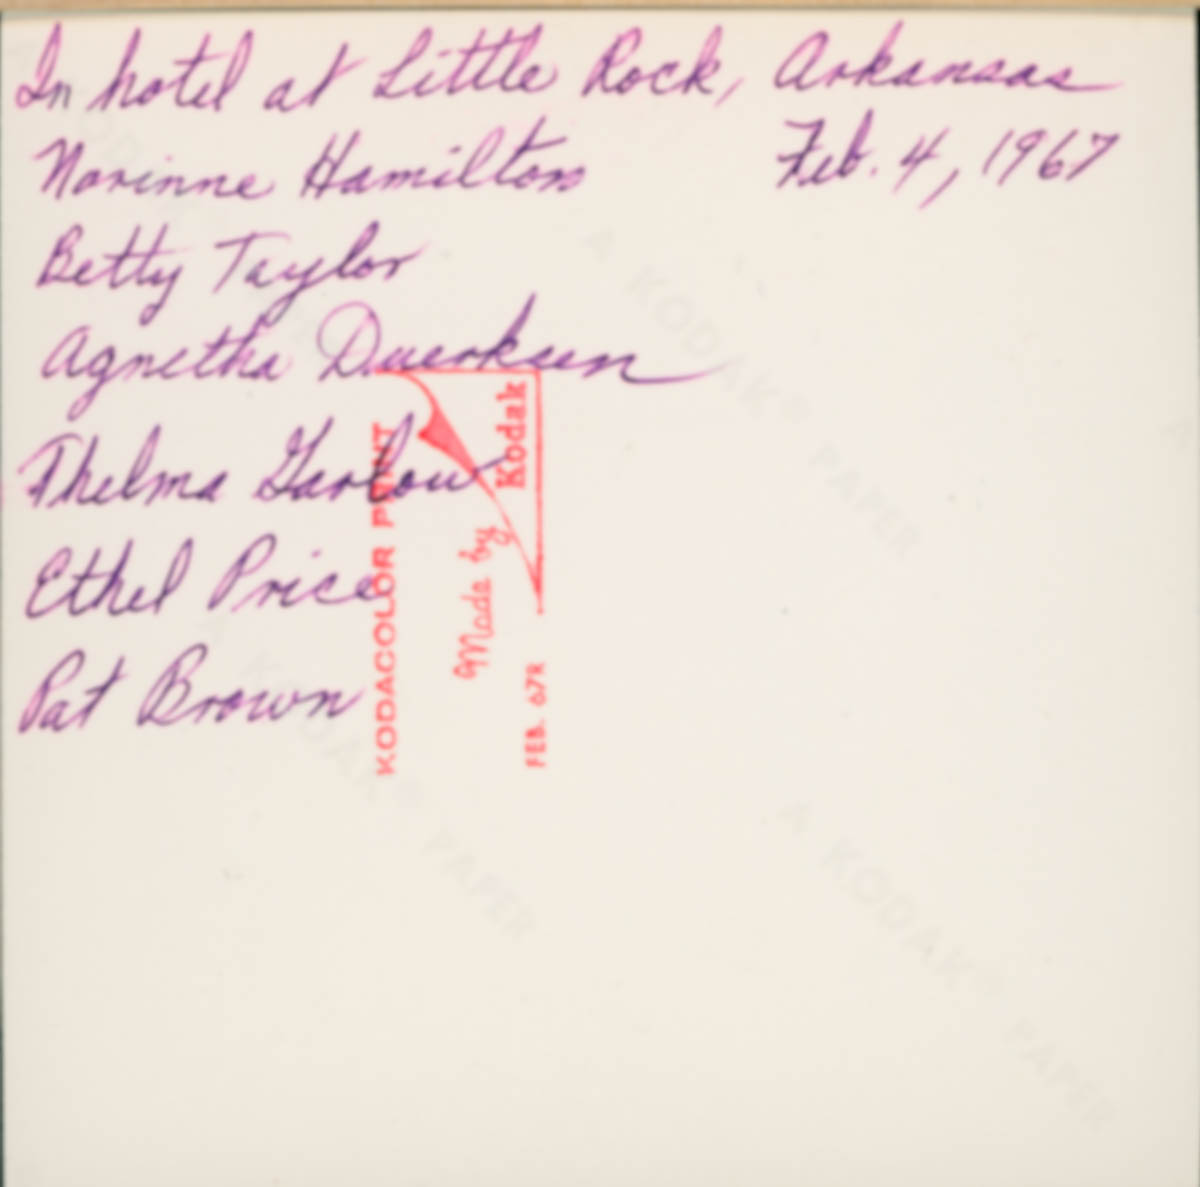 In hotel at Little Rock, Arkansas
Norinne Hamilton Feb. 4, 1967
Betty Taylor
Agnetha Duerksen
Thelma Garlow
Ethel Price
Pat Brown
KODACOLOR PRINT
Made by
Kodak
FEB. 67R
A KODAK® PAPER
KODAK® PAPER
A KODAK® PAPER